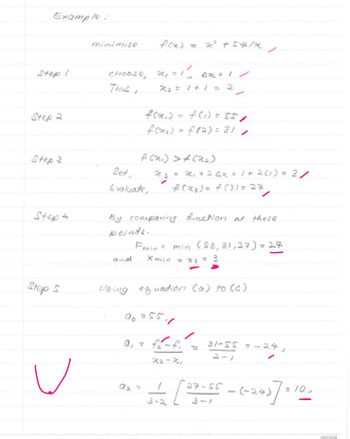 Example:
minimise f(x) = x² + 54/x
Step 1 choose, x₁ = 1, Δx = 1
Thus, x₂ = 1 + 1 = 2
Step 2 f(x₁) = f(1) = 55
f(x₂) = f(2) = 31
Step 3 f(x₁) > f(x₂)
Set, x₃ = x₁ + 2Δx = 1 + 2(1) = 3
Evaluate, f(x₃) = f(3) = 27
Step 4 By comparing function at these
points.
Fmin = min (55, 31, 27) = 27
and xmin = x₃ = 3
Step 5 Using equation (a) to (c)
a₀ = 55,
a₁ = f₂ - f₁ / x₂ - x₁ = 31 - 55 / 2 - 1 = -24,
a₂ = 1 / 3-2 [ 27 - 55 / 3 - 1 - (-24) ] = 10,